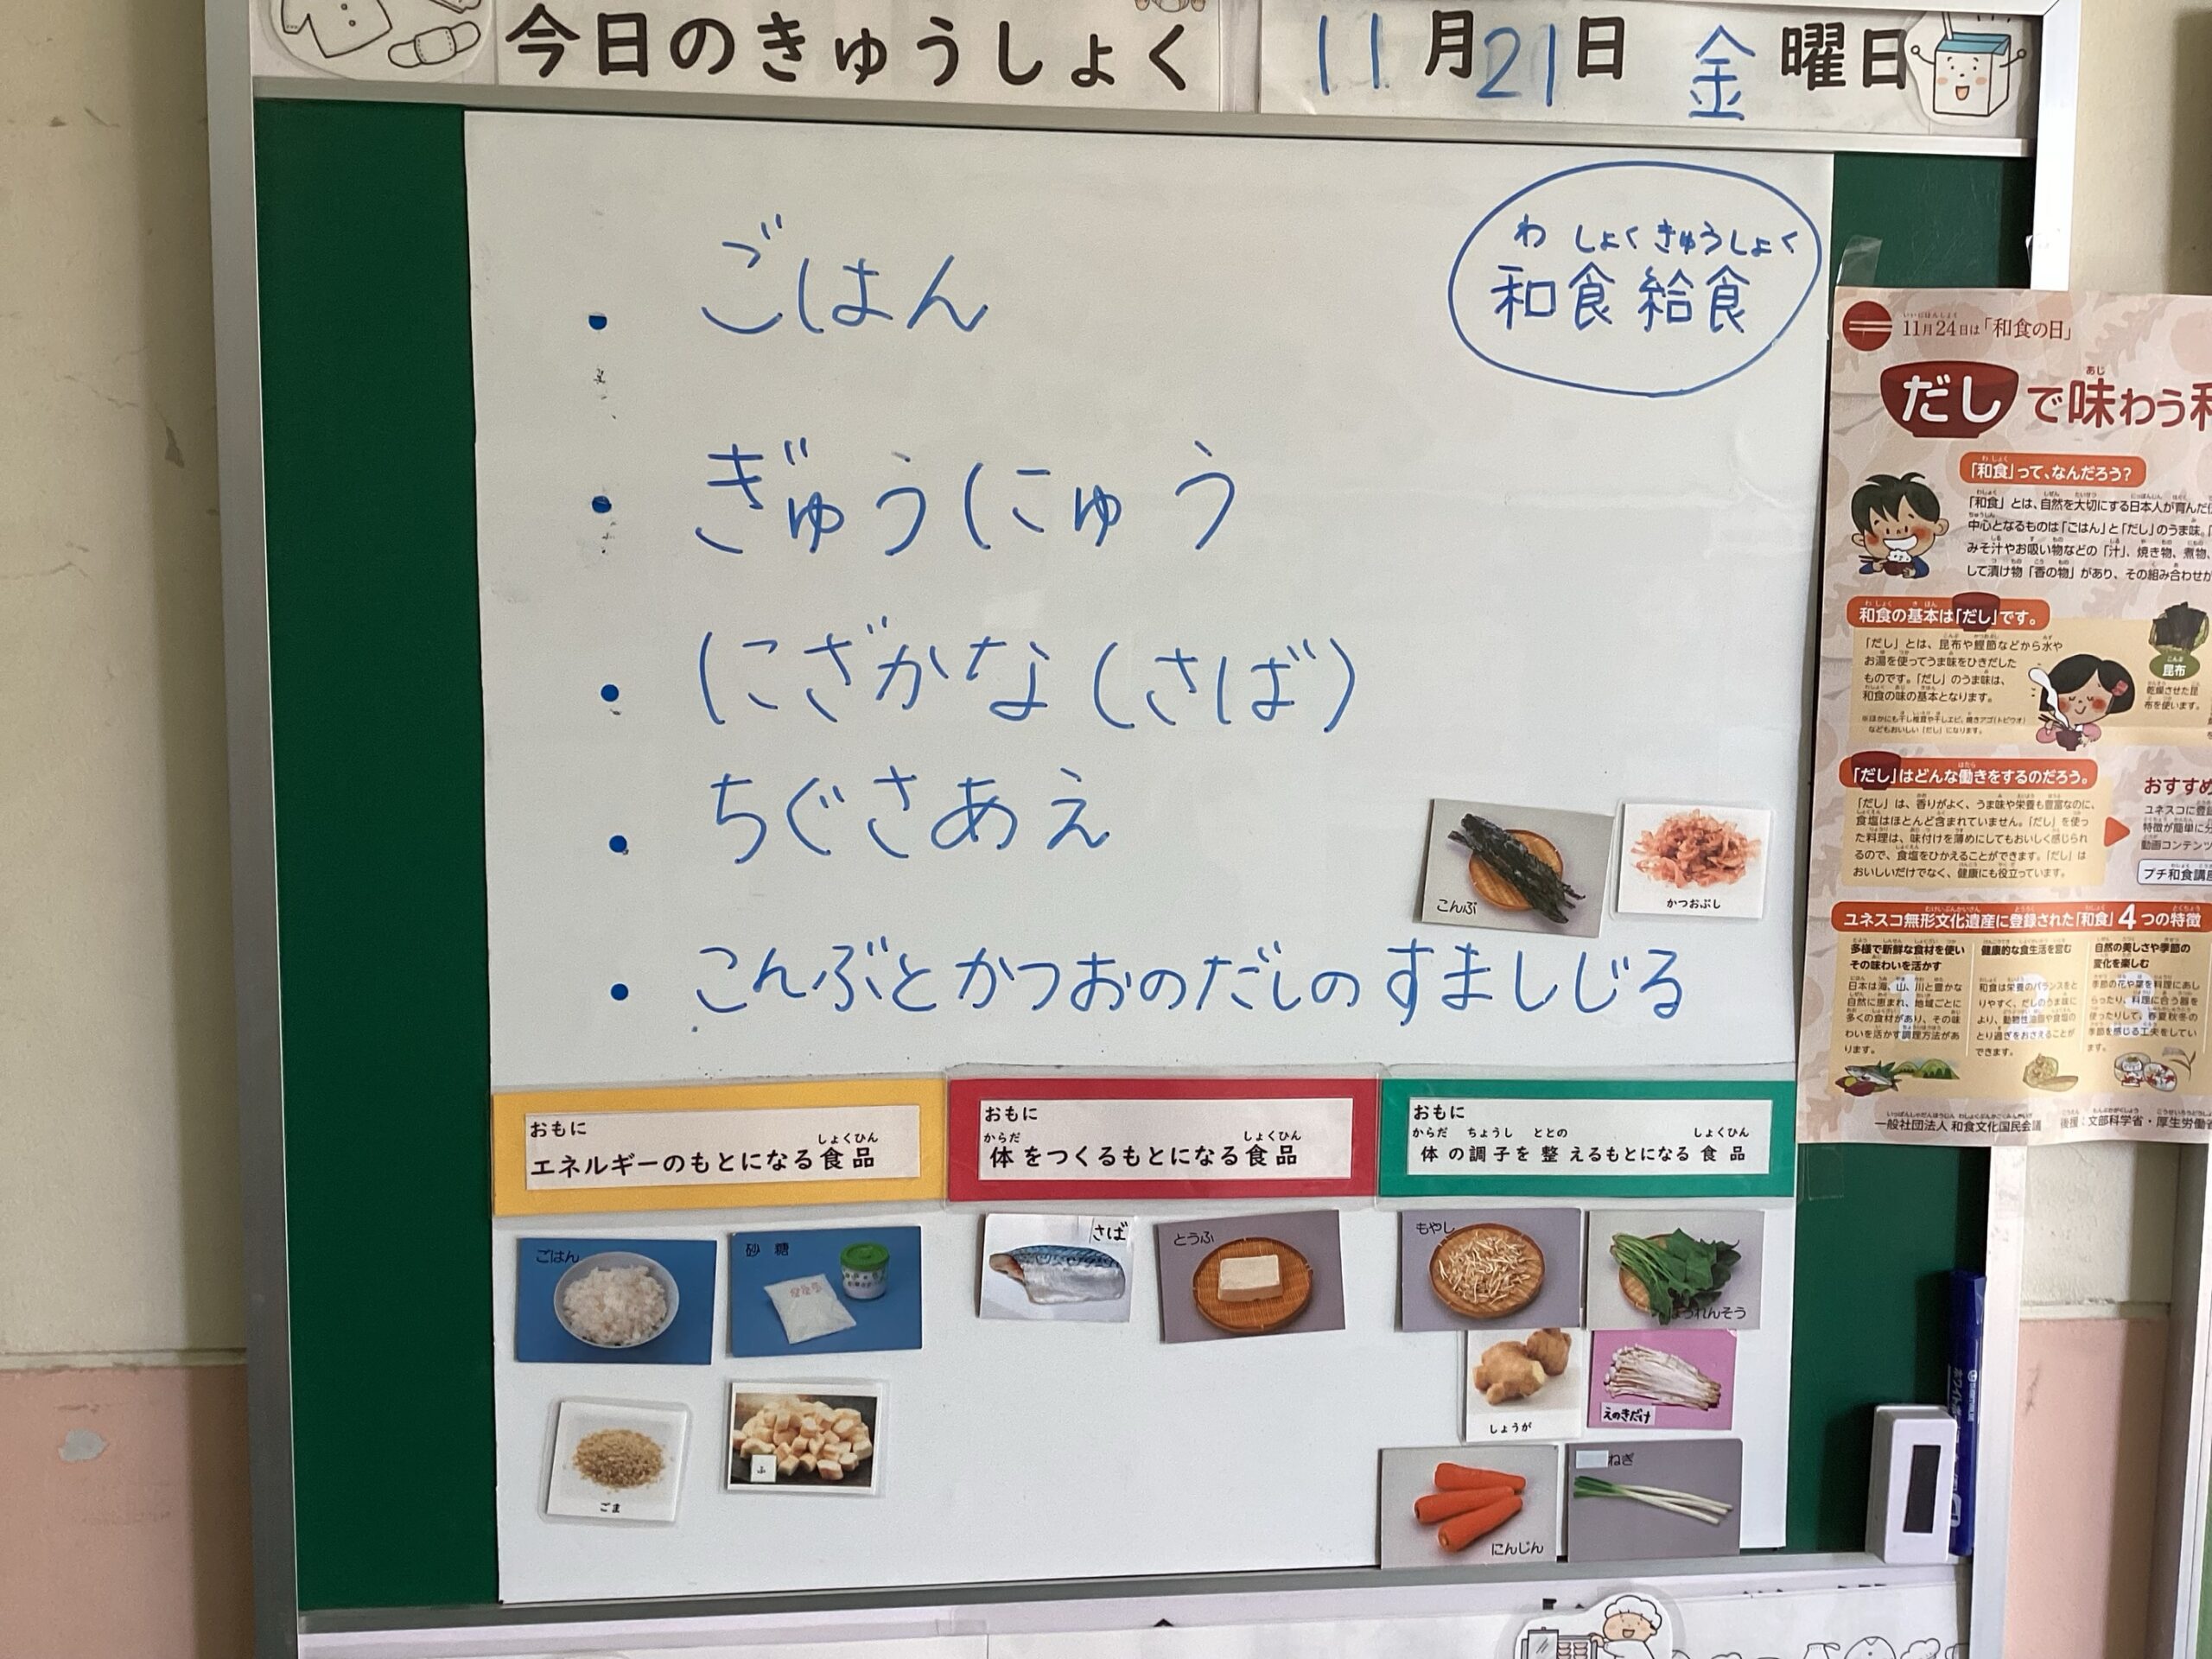 今日のきゅうしょく
11月21日 金曜日
わしょくきゅうしょく
和食給食
・ごはん
・ぎゅうにゅう
・にざかな(さば)
・ちぐさあえ
・こんぶとかつおのだしのすましじる
こんぶ
かつおぶし
おもに
エネルギーのもとになる食品
しょくひん
おもに
体をつくるもとになる食品
からだ しょくひん
おもに
体の調子を整えるもとになる食品
からだ ちょうし ととの しょくひん
ごはん
砂糖
ごま
ふ
さば
とうふ
もやし
ほうれんそう
しょうが
えのきだけ
にんじん
ねぎ
11月24日は「和食の日」
だしで味わう和
「和食」って、なんだろう?
「和食」とは、自然を大切にする日本人が育んだ
中心となるものは「ごはん」と「だし」のうま味。
みそ汁やお吸い物などの「汁」、焼き物、煮物、
して漬け物「香の物」があり、その組み合わせが
和食の基本は「だし」です。
「だし」とは、昆布や鰹節などから水や
お湯を使ってうま味をひきだした
ものです。「だし」のうま味は、
和食の味の基本となります。
※ほかにも干し椎茸や干しエビ、焼きアゴ(トビウオ)
などもおいしい「だし」になります。
昆布
乾燥させた昆
布を使います。
「だし」はどんな働きをするのだろう。
「だし」は、香りがよく、うま味や栄養も豊富なのに、
食塩はほとんど含まれていません。「だし」を使っ
た料理は、味付けを薄めにしてもおいしく感じられ
るので、食塩をひかえることができます。「だし」は
おいしいだけでなく、健康にも役立っています。
おすすめ
ユネスコに登録
特徴が簡単に分
動画コンテンツ
プチ和食講座
ユネスコ無形文化遺産に登録された「和食」4つの特徴
多様で新鮮な食材を使い
その味わいを活かす
日本は海、山、川と豊かな
自然に恵まれ、地域ごとに
多くの食材があり、その味
わいを活かす調理方法があ
ります。
健康的な食生活を営む
和食は栄養のバランスをと
りやすく、だしのうま味に
より、動物性油脂や食塩の
とり過ぎをおさえることが
できます。
自然の美しさや季節の
変化を楽しむ
季節の花や葉を料理にあし
らったり、料理に合う器を
使ったりして、春夏秋冬の
季節を感じる工夫をしてい
ます。
一般社団法人 和食文化国民会議 後援:文部科学省・厚生労働省